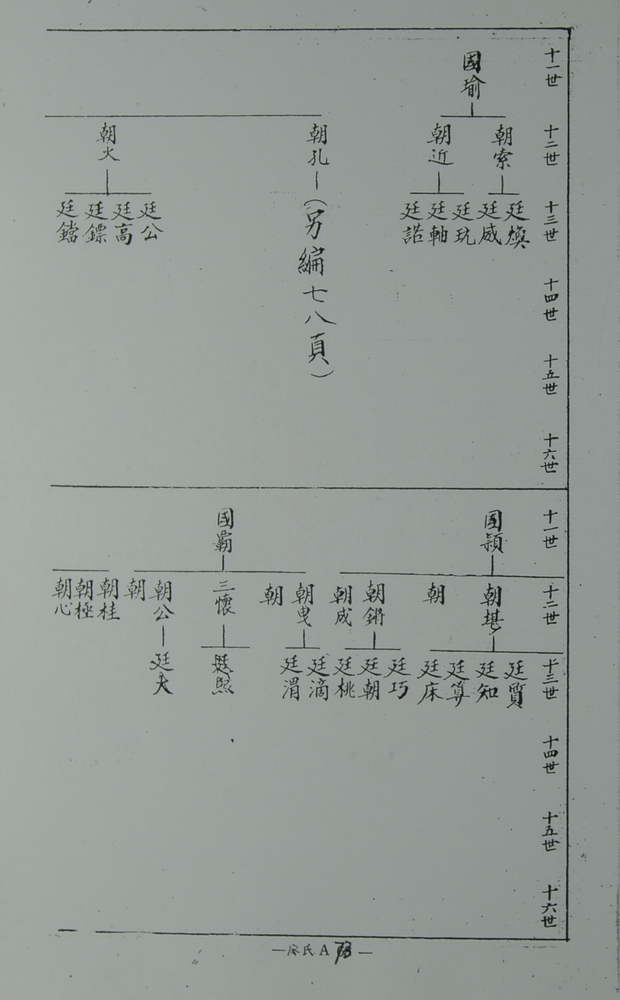 十一世
十二世
十三世
十四世
十五世
十六世
國瑜
朝索
朝近
廷煥
廷威
廷玩
廷軸
廷詔
朝孔
(另編七八頁)
朝火
廷公
廷高
廷鏢
廷鐺
十一世
十二世
十三世
十四世
十五世
十六世
國穎
朝堪
朝
廷質
廷知
廷算
廷床
朝鏘
朝成
廷巧
廷朝
廷桃
國霸
朝曳
朝
廷滴
廷渭
三懷
廷熙
朝公
朝
廷大
朝桂
朝極
朝心
氏A